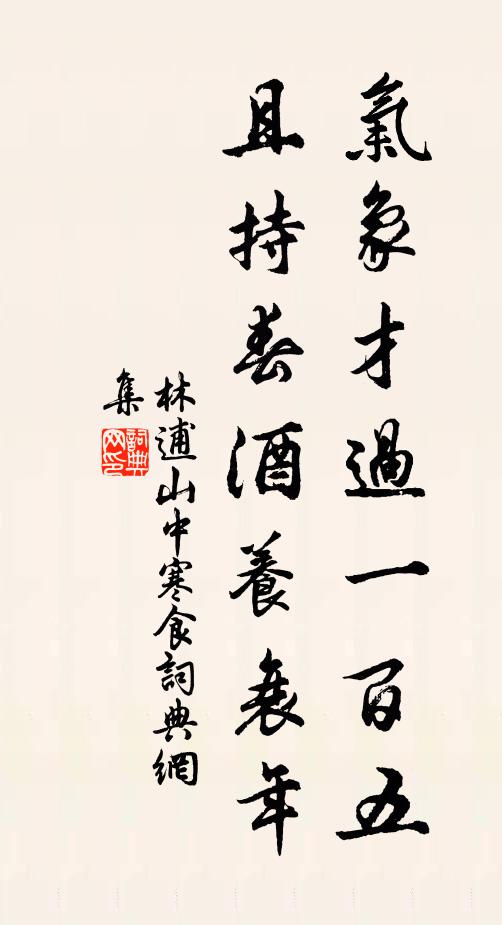 氣象才過一百五
且持春酒養衰年
林逋山中寒食詞典網
集
詞典網印